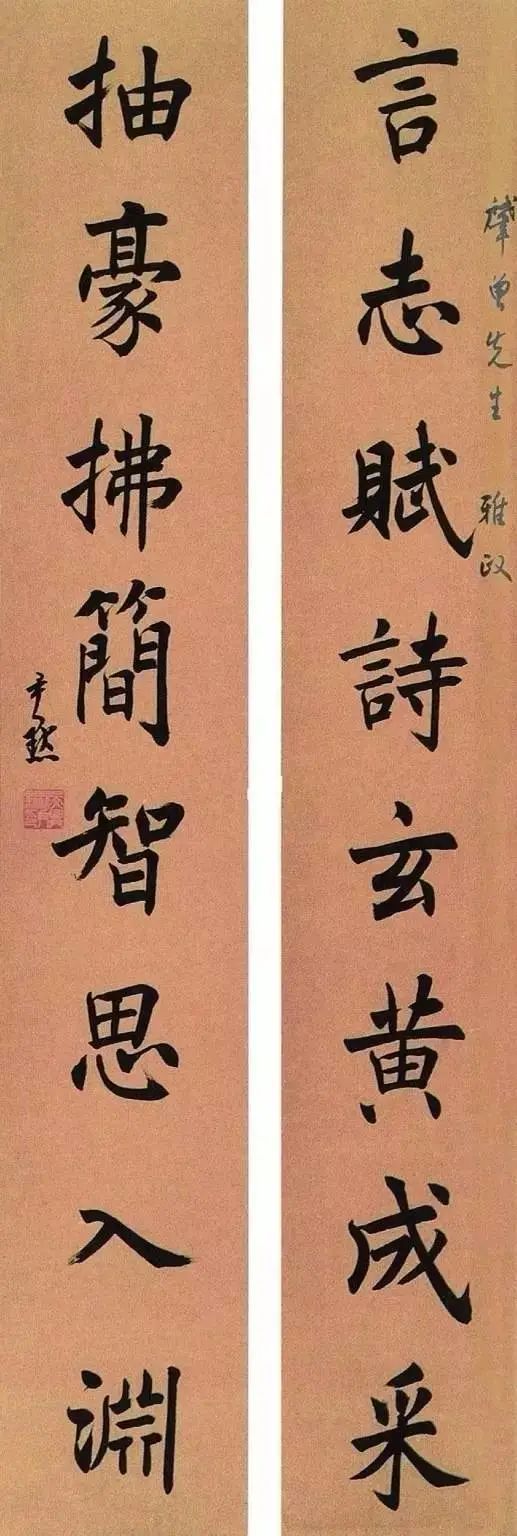 曾先生 雅政
言志賦詩玄黄成采
抽豪拂簡智思入淵
尹默